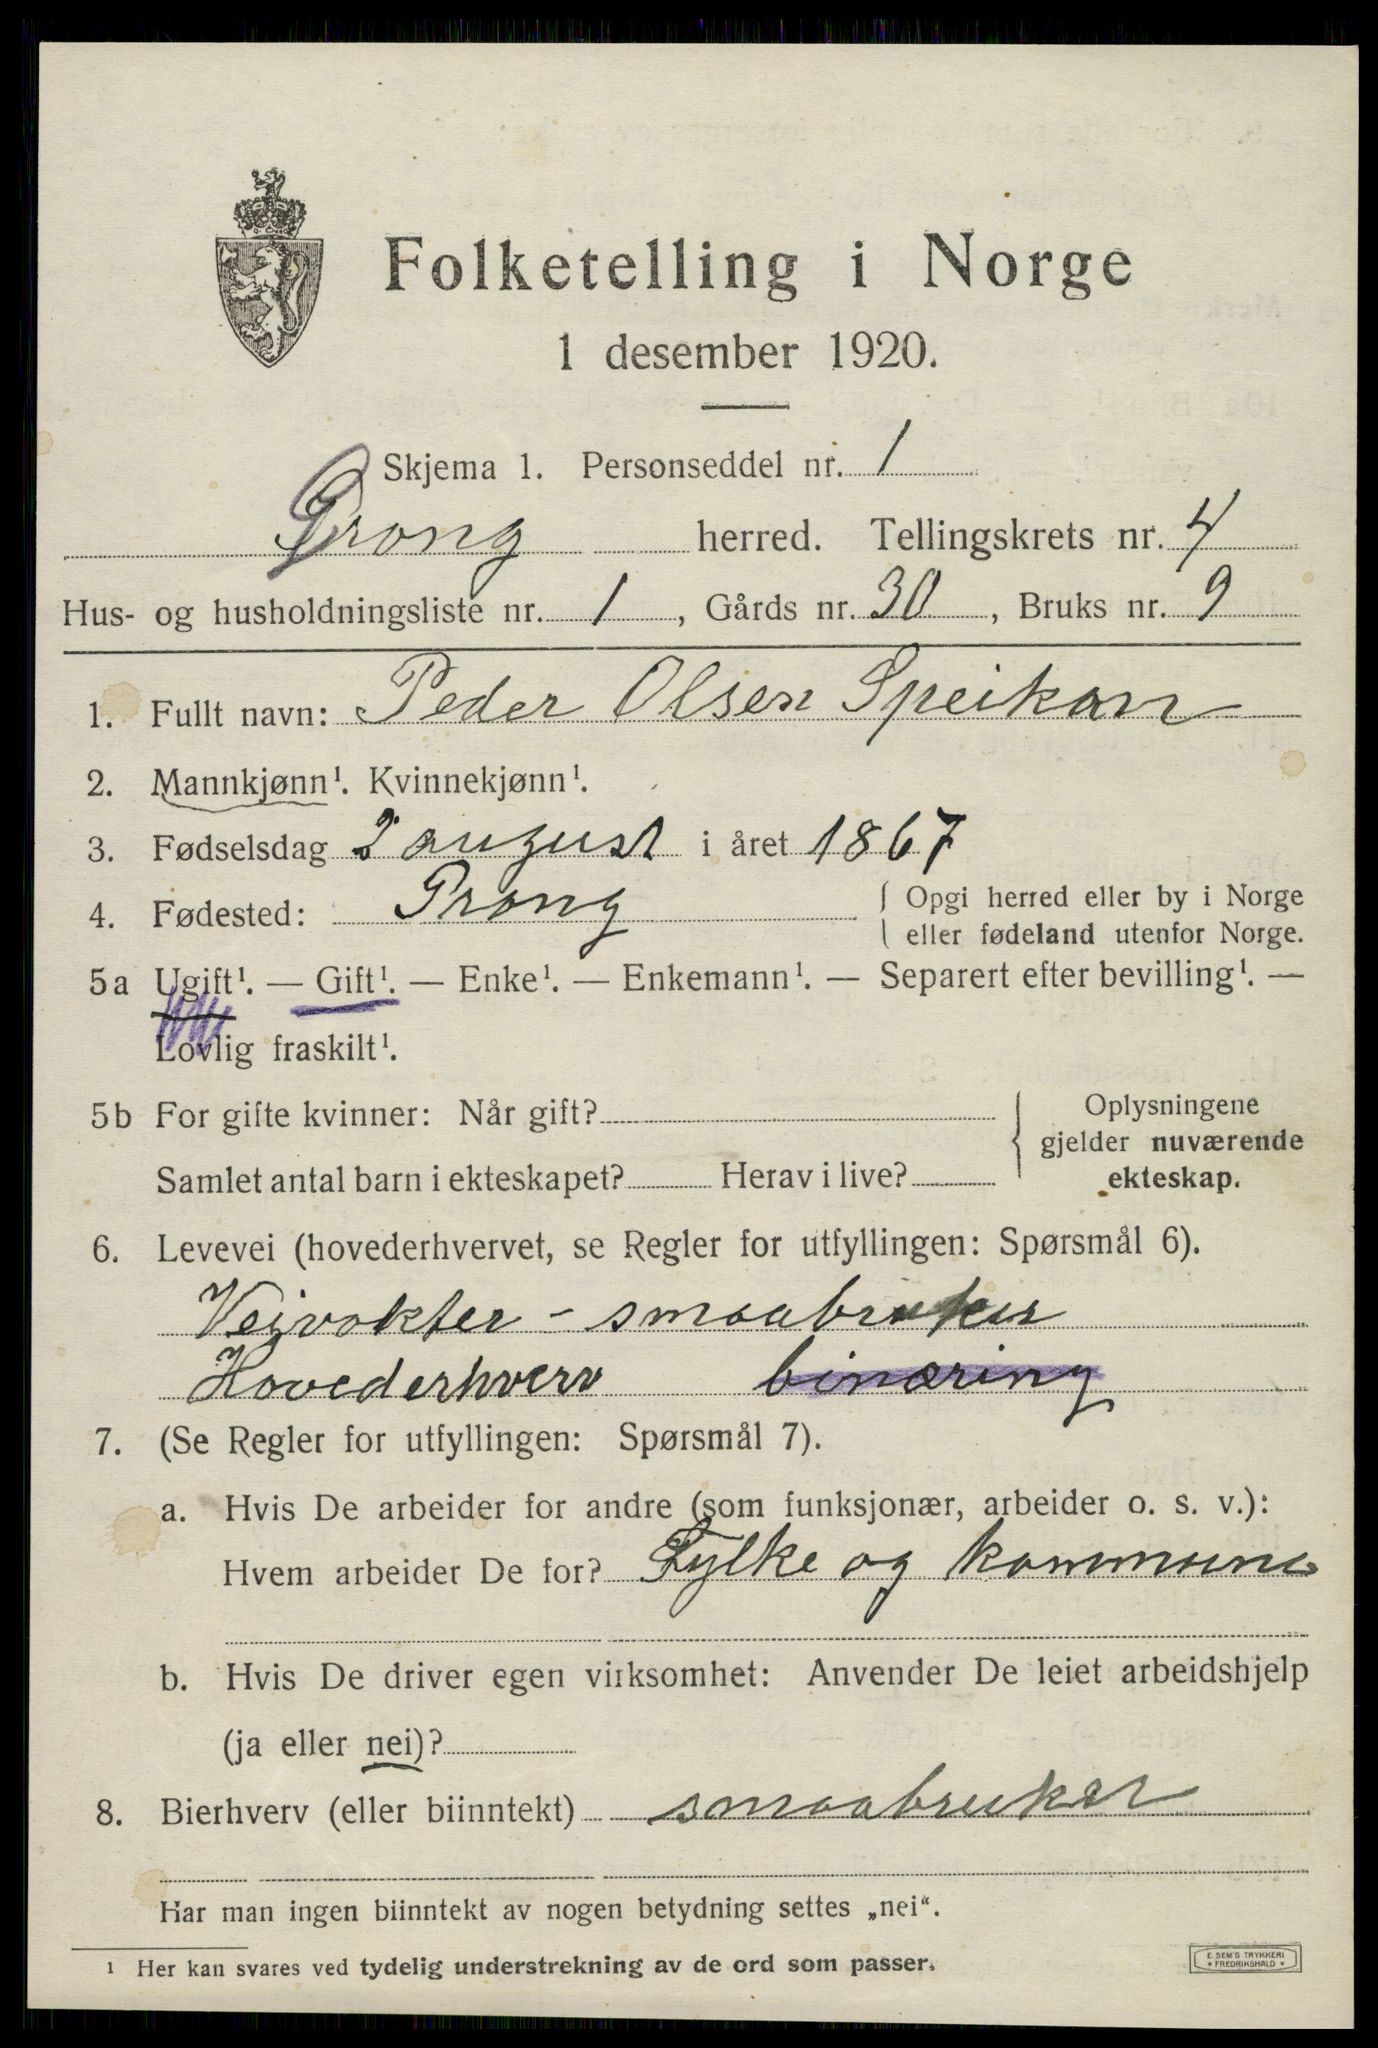 Folketelling i Norge
1 desember 1920.
Skjema 1. Personseddel nr. 1
Grong herred. Tellingskrets nr. 4
Hus- og husholdningsliste nr. 1, Gårds nr. 30, Bruks nr. 9
1. Fullt navn: Peder Olsen Speikan
2. Mannkjønn¹. Kvinnekjønn¹.
3. Fødselsdag 2 august i året 1867
4. Fødested: Grong { Opgi herred eller by i Norge
eller fødeland utenfor Norge.
5a Ugift¹. — Gift¹. — Enke¹. — Enkemann¹. — Separert efter bevilling¹. —
Lovlig fraskilt¹.
5b For gifte kvinner: Når gift? { Oplysningene
gjelder nuværende
Samlet antal barn i ekteskapet? Herav i live? ekteskap.
6. Levevei (hovederhvervet, se Regler for utfyllingen: Spørsmål 6).
Veivokter - smaabruker
Hovederhverv binæring
7. (Se Regler for utfyllingen: Spørsmål 7).
a. Hvis De arbeider for andre (som funksjonær, arbeider o. s. v.):
Hvem arbeider De for? Fylke og kommune
b. Hvis De driver egen virksomhet: Anvender De leiet arbeidshjelp
(ja eller nei)?
8. Bierhverv (eller biinntekt) smaabruker
Har man ingen biinntekt av nogen betydning settes „nei“.
¹ Her kan svares ved tydelig understrekning av de ord som passer.
E. SEM'S TRYKKERI
* FREDRIKSHALD *